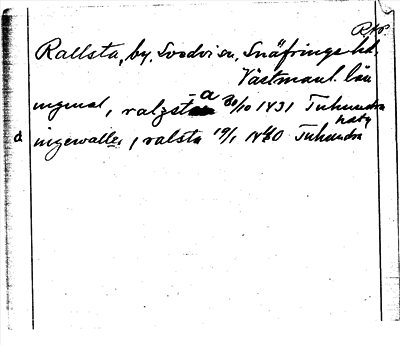 RAp.
Rallsta, by, Svedvi sn, Snäfringe hd.
Västmanl. län
ingemal, ralzsta 30/10 1431 Tuhundra
häty
a ingewalle, ralsta 19/1 1480 Tuhundra